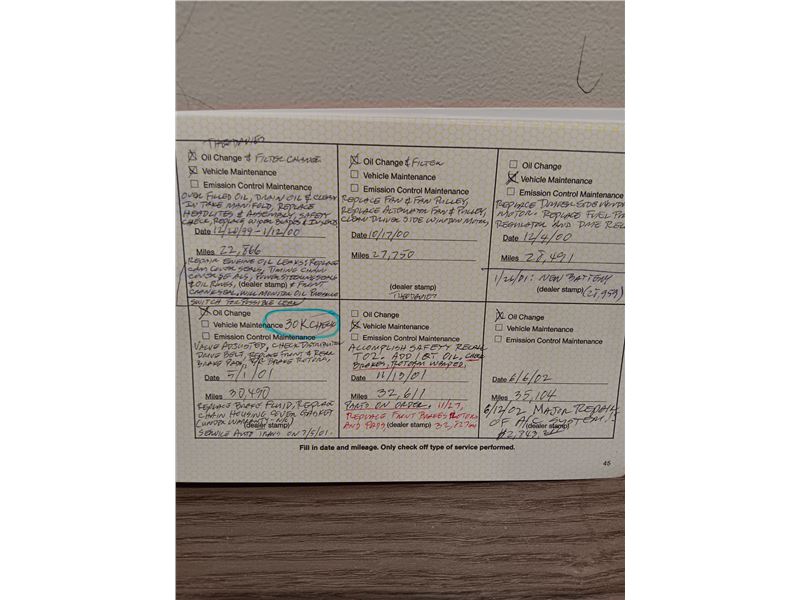 Oil Change & FILTER CHANGE
Vehicle Maintenance
Emission Control Maintenance
OVER FILLED OIL, DRAIN OIL & CLEAN
INTAKE MANIFOLD, REPLACE
HEADLITES & ASSEMBLY, SAFETY
CHECK, REPLACE WIPER BLADES &
Date 12/28/99 - 1/12/00
Miles 22,866
REPAIR ENGINE OIL LEAKS: REPLACE
CAM COVER SEALS, TIMING CHAIN
COVER SEALS, POWER STEERING SEALS
& OIL RINGS, (dealer stamp) & FRONT
CRANKSEAL, WILL MONITOR OIL PRESSURE
SWITCH FOR POSSIBLE LEAK
Oil Change & FILTER
Vehicle Maintenance
Emission Control Maintenance
REPLACE FAN & FAN PULLEY,
REPLACE ALTERNATOR FAN & PULLEY,
CLEAN DRIVER SIDE WINDOW MOTOR,
Date 10/17/00
Miles 27,750
(dealer stamp)
Oil Change
Vehicle Maintenance
Emission Control Maintenance
REPLACE DRIVER SIDE WINDOW
MOTOR: REPLACE FUEL
REGULATOR AND DATE
Date 12/4/00
Miles 28,491
1/26/01: NEW BATTERY
(dealer stamp) (28,959)
Oil Change
Vehicle Maintenance 30K CHECK
Emission Control Maintenance
VALVE ADJUSTED, CHECK DISTRIBUTOR
DRIVE BELT, REPLACE FRONT & REAR
BRAKE PADS, BRAKE ROTORS,
Date 5/1/01
Miles 30,490
REPLACE BRAKE FLUID, REPLACE
CHAIN HOUSING COVER GASKET
(UNDER WARRANTY - N/C)
(dealer stamp)
SERVICE AUTO TRANS ON 7/5/01.
Oil Change
Vehicle Maintenance
Emission Control Maintenance
ACCOMPLISH SAFETY RECALL
T02. ADD 1 QT OIL, CHECK
BRAKES, ROTORS
Date 11/13/01
Miles 32,611
PARTS ON ORDER. 11/27,
REPLACE FRONT BRAKES ROTORS
AND PADS (dealer stamp) 32,827
Oil Change
Vehicle Maintenance
Emission Control Maintenance
Date 6/6/02
Miles 35,104
6/12/02 MAJOR REPAIR
OF A/C SYSTEM!
(dealer stamp)
$2,743.
Fill in date and mileage. Only check off type of service performed.
45